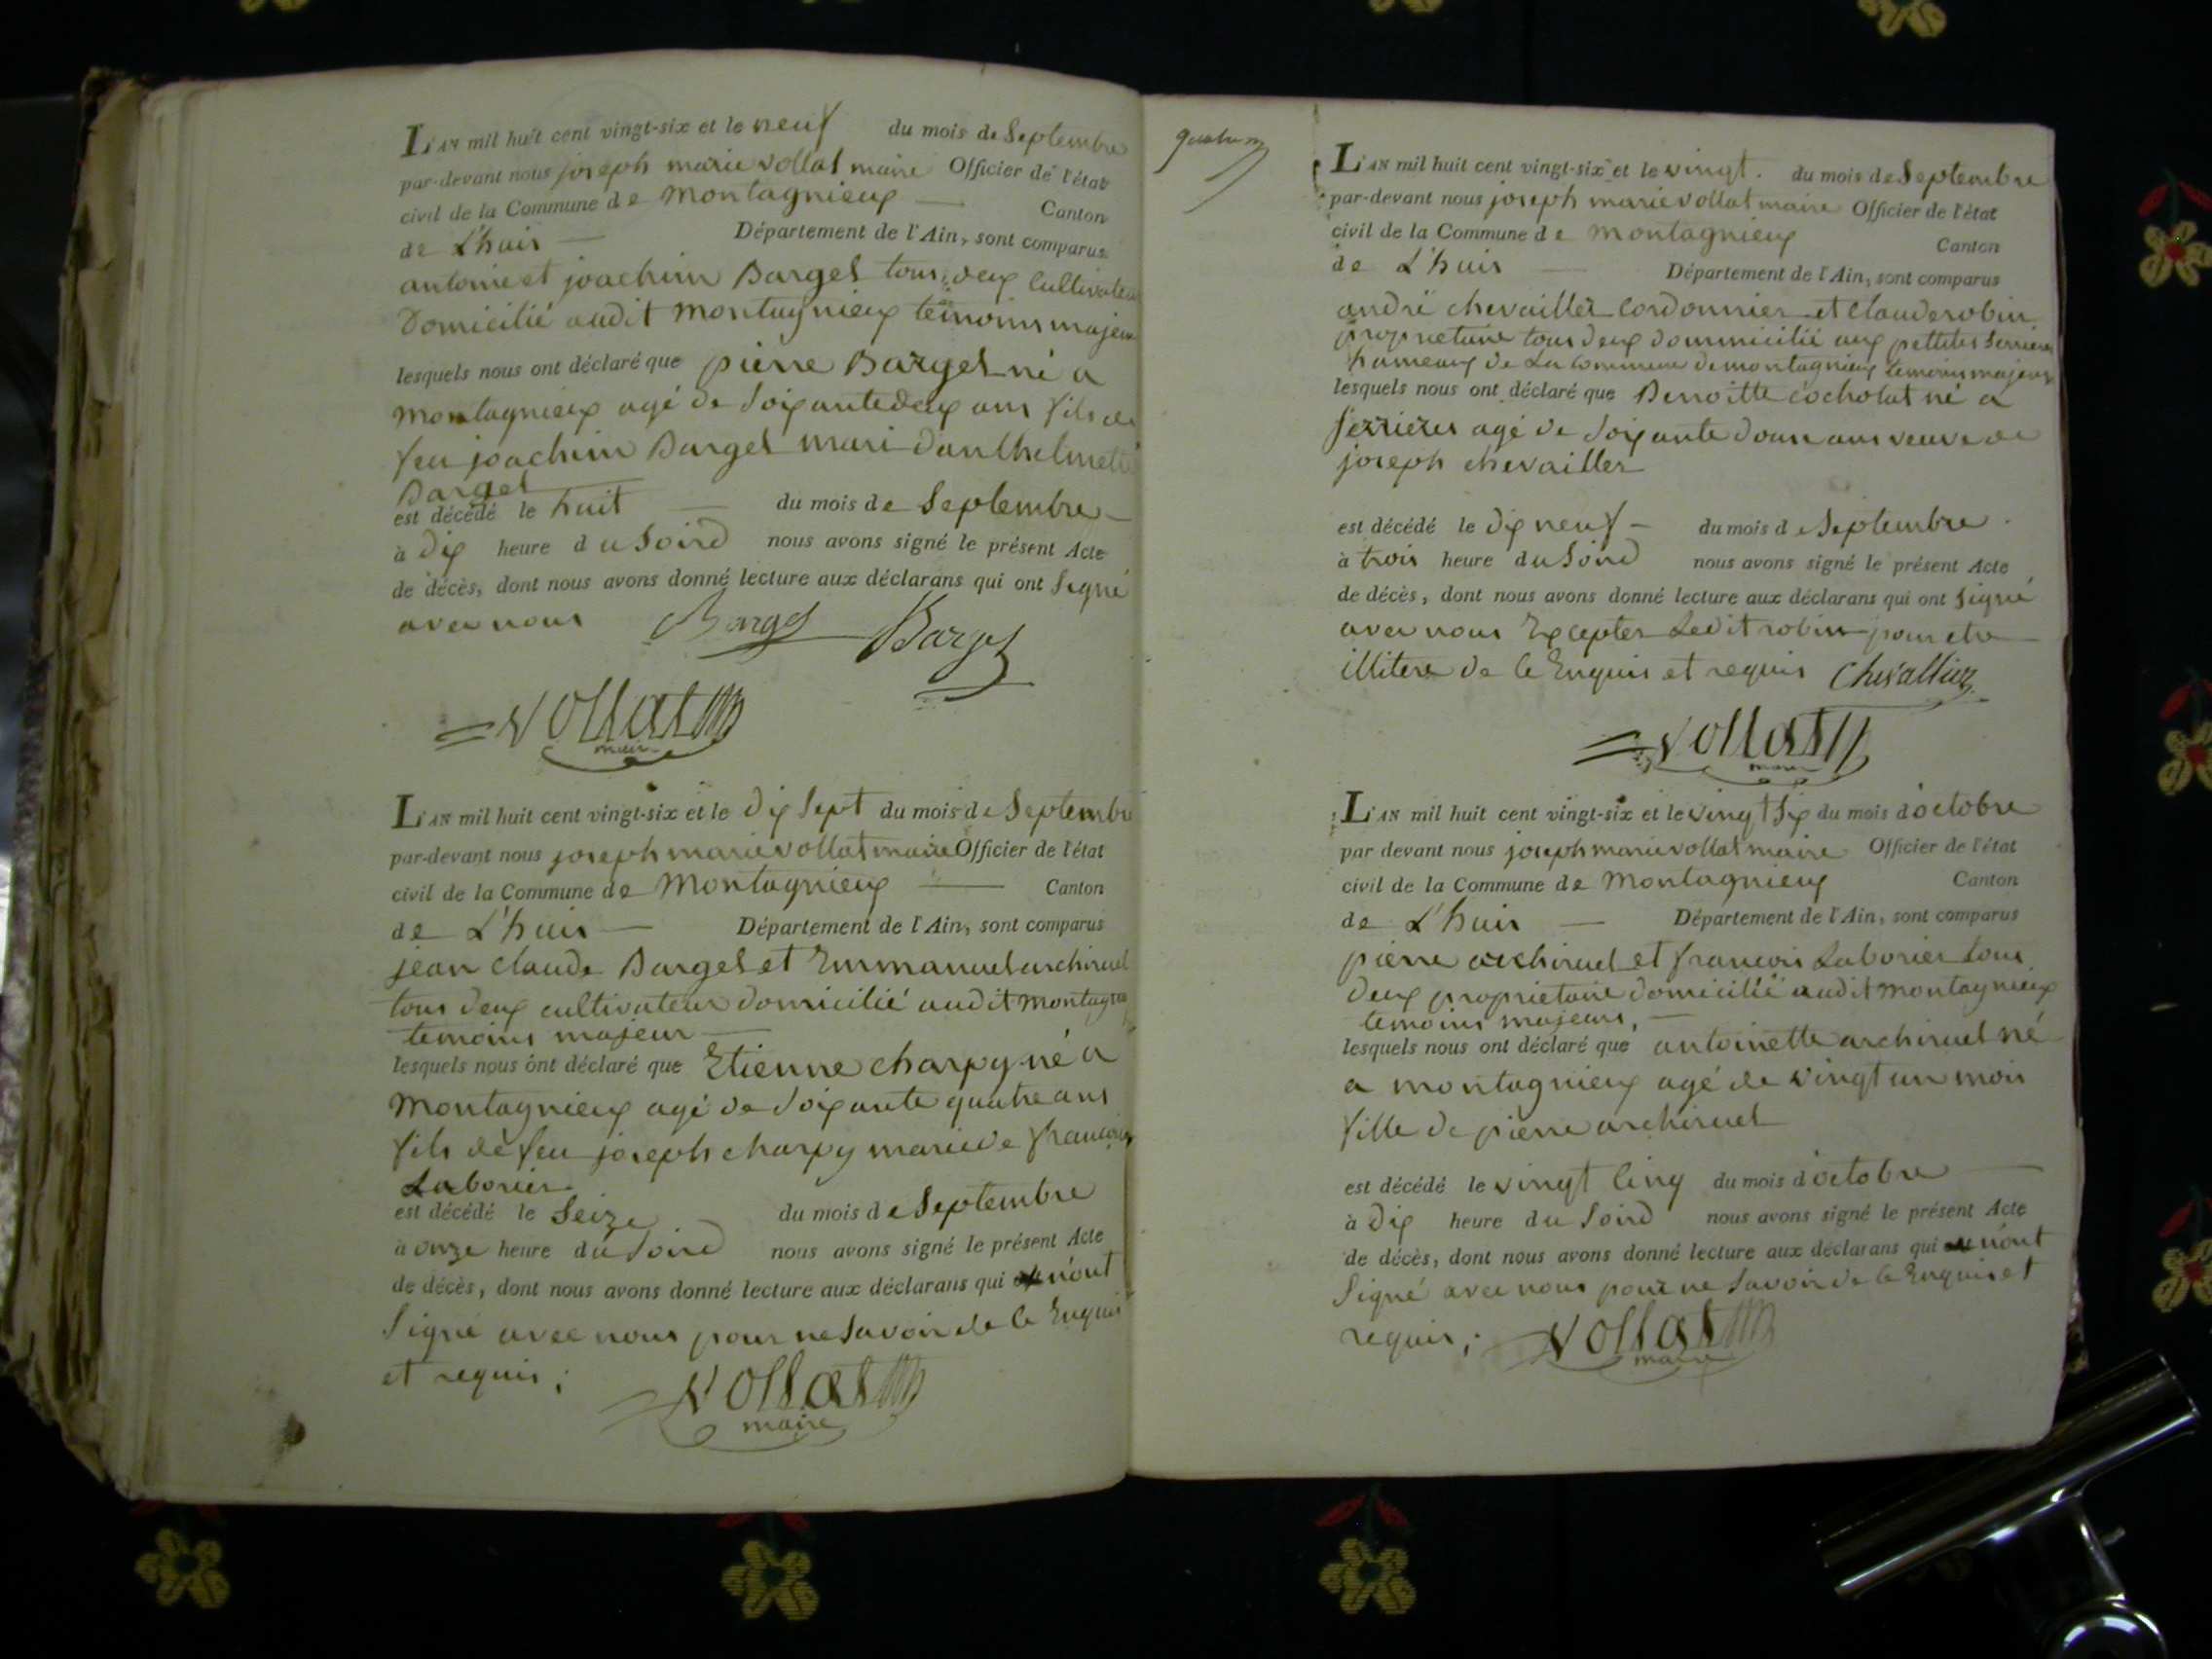 L'AN mil huit cent vingt-six et le neuf du mois de Septembre
par-devant nous joseph marie vollat maire Officier de l'état
civil de la Commune de Montagnieux Canton
de L'huis Département de l'Ain, sont comparus
antoine et joachim Barget tous deux Cultivateur
Domicilié audit Montagnieux temoins majeur
lesquels nous ont déclaré que pierre Barget né a
Montagnieux agé de Soixante deux ans fils de
feu joachim Barget mari d'anthelmette
Barget
est décédé le huit du mois de Septembre
à Dix heure du Soird nous avons signé le présent Acte
de décès, dont nous avons donné lecture aux déclarans qui ont Signé
avec nous Barget Barget
Vollat
maire
L'AN mil huit cent vingt-six et le Dix Sept du mois de Septembre
par-devant nous joseph marie vollat maire Officier de l'état
civil de la Commune de Montagnieux Canton
de L'huis Département de l'Ain, sont comparus
jean claude Barget et Emmanuel archiruel
tous deux cultivateur domicilié audit Montagnieux
temoins majeur
lesquels nous ont déclaré que Etienne charpy né a
Montagnieux agé de Soixante quatre ans
fils de feu joseph charpy marie de francoise
Laborier
est décédé le Seize du mois de Septembre
à onze heure du Soird nous avons signé le présent Acte
de décès, dont nous avons donné lecture aux déclarans qui n'ont
Signé avec nous pour ne Savoir de ce Enquis
et requis ;
Vollat
maire
L'AN mil huit cent vingt-six et le vingt du mois de Septembre
par-devant nous joseph marie vollat maire Officier de l'état
civil de la Commune de Montagnieux Canton
de L'huis Département de l'Ain, sont comparus
andré chevailler Cordonnier et Claude robin
proprietaire tous deux dommicilié aux pettites Serrieres
hameaux de La Commune de montagnieux temoins majeurs
lesquels nous ont déclaré que Benoitte cocholat né a
Serrieres agé de Soixante Douze ans veuve de
joseph chevailler
est décédé le Dix neuf du mois de Septembre
à trois heure du Soird nous avons signé le présent Acte
de décès, dont nous avons donné lecture aux déclarans qui ont Signé
avec nous Excepter Ledit robin pour etre
illitere de ce Enquis et requis Chevallier
Vollat
maire
L'AN mil huit cent vingt-six et le vingt Six du mois d'octobre
par devant nous joseph marie vollat maire Officier de l'état
civil de la Commune de Montagnieux Canton
de L'huis Département de l'Ain, sont comparus
pierre archiruel et francois Laborier tous
Deux proprietaire domicilié audit Montagnieux
temoins majeurs,
lesquels nous ont déclaré que antoinette archiruel né
a montagnieux agé de vingt un mois
fille de pierre archiruel
est décédé le vingt Cinq du mois d'octobre
à Dix heure du Soird nous avons signé le présent Acte
de décès, dont nous avons donné lecture aux déclarans qui n'ont
Signé avec nous pour ne Savoir de ce Enquis et
requis ; Vollat
maire